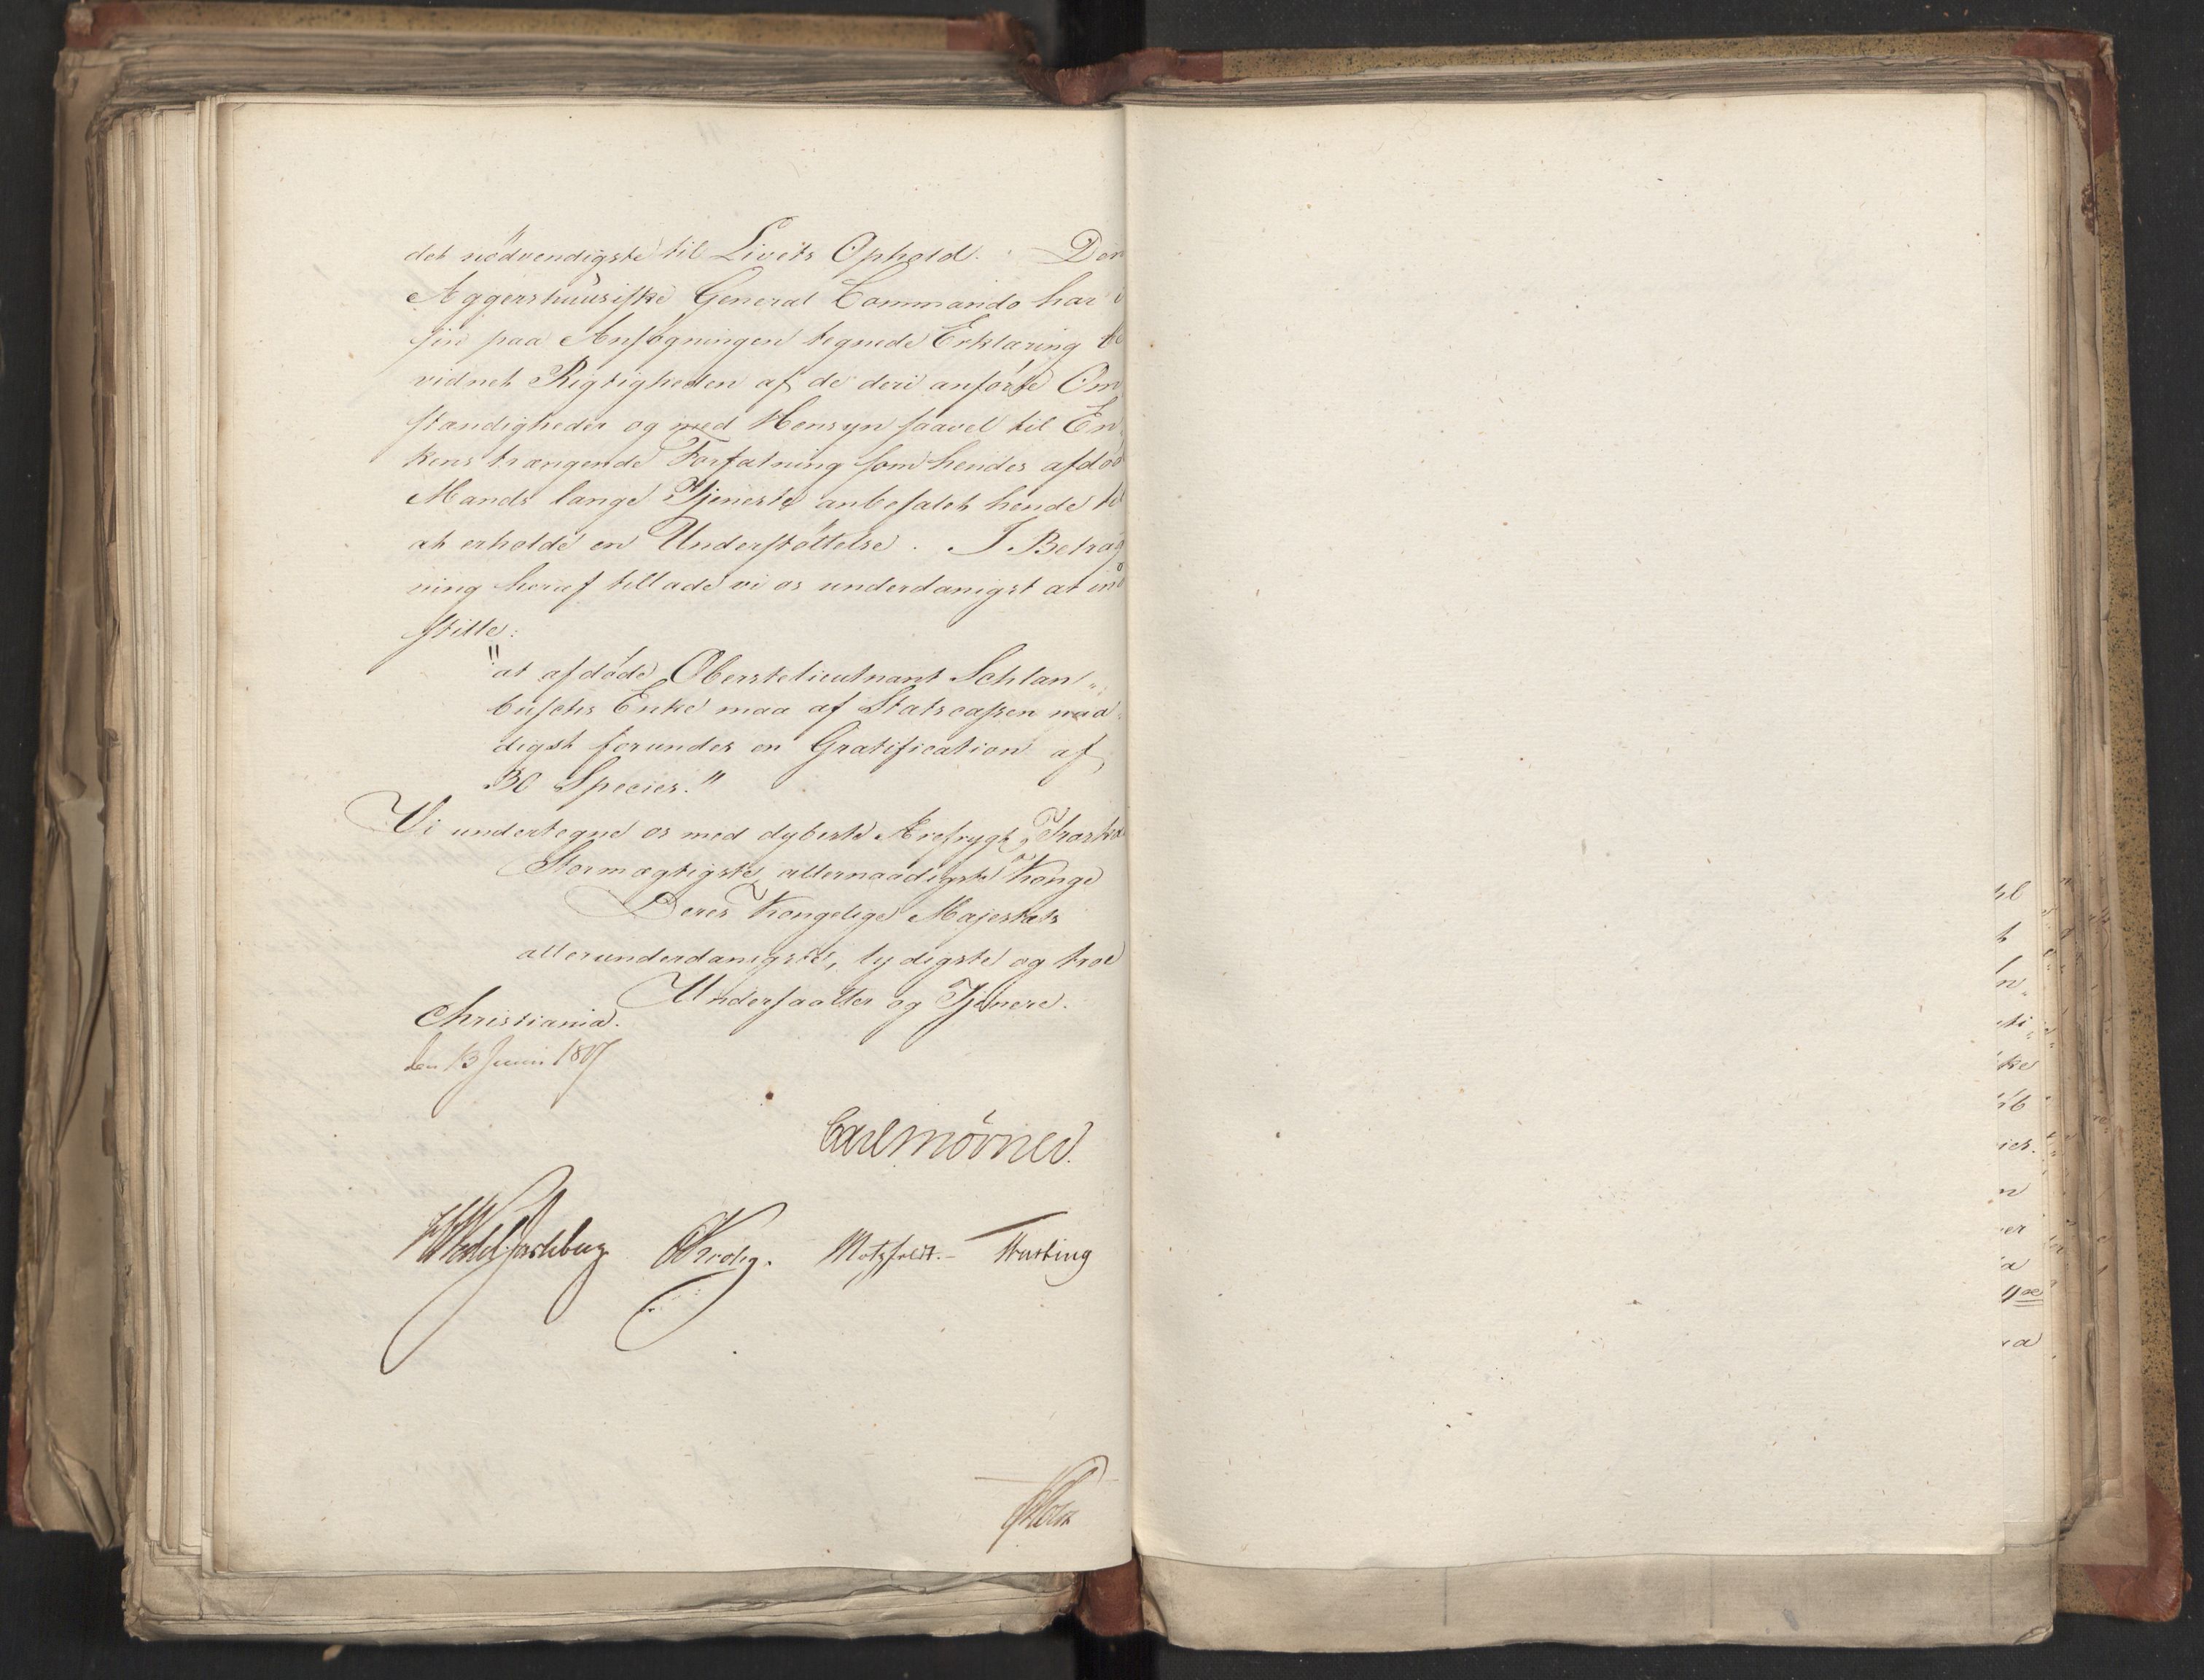 det nödvendigste til Livets Ophold. Den
Aggershuusiske General Commando har i
sin paa Ansøgningen tegnede Erklæring be
vidnet Rigtigheden af de deri anførte Om
stændigheder og med Hensyn saavel til En-
kens trængende Forfatning som hendes afdøde
Mands lange Tjeneste anbefalet hende til
at erholde en Understøttelse. I Betrag
ning heraf tillade vi os underdanigst at ind
stille:
"at afdøde Oberstelieutnant Schlan-
buschs Enke maa af Statscassen naa-
digst forundes en Gratification af
30 Species."
Vi undertegne os med dybeste Ærefrygt,
Stormægtigste, allernaadigste Konge
Deres Kongelige Majestæts
allerunderdanigste, lydigste og troe
Undersaatter og Tjenere.
Christiania.
den 13 Junii 1817
Carl Mörner.
Wedel Jarlsberg Krohg. Motzfeldt. Hasting
Holst